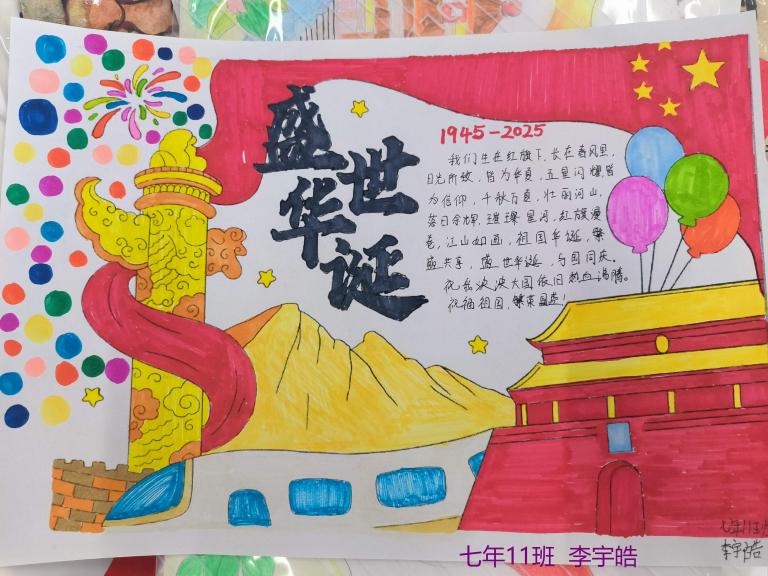 盛世
华诞
1945-2025
我们生在红旗下，长在春风里，
目光所致，皆为华夏，五星闪耀，皆
为信仰，千秋万直，壮丽河山，
落日余辉，璀璨星河，红旗漫
卷，江山如画，祖国华诞，繁
盛共享，盛世华诞，与国同庆。
祝我泱泱大国依旧热血沸腾。
祝福祖国，繁荣昌盛！
七年11班
李宇皓
七年11班 李宇皓